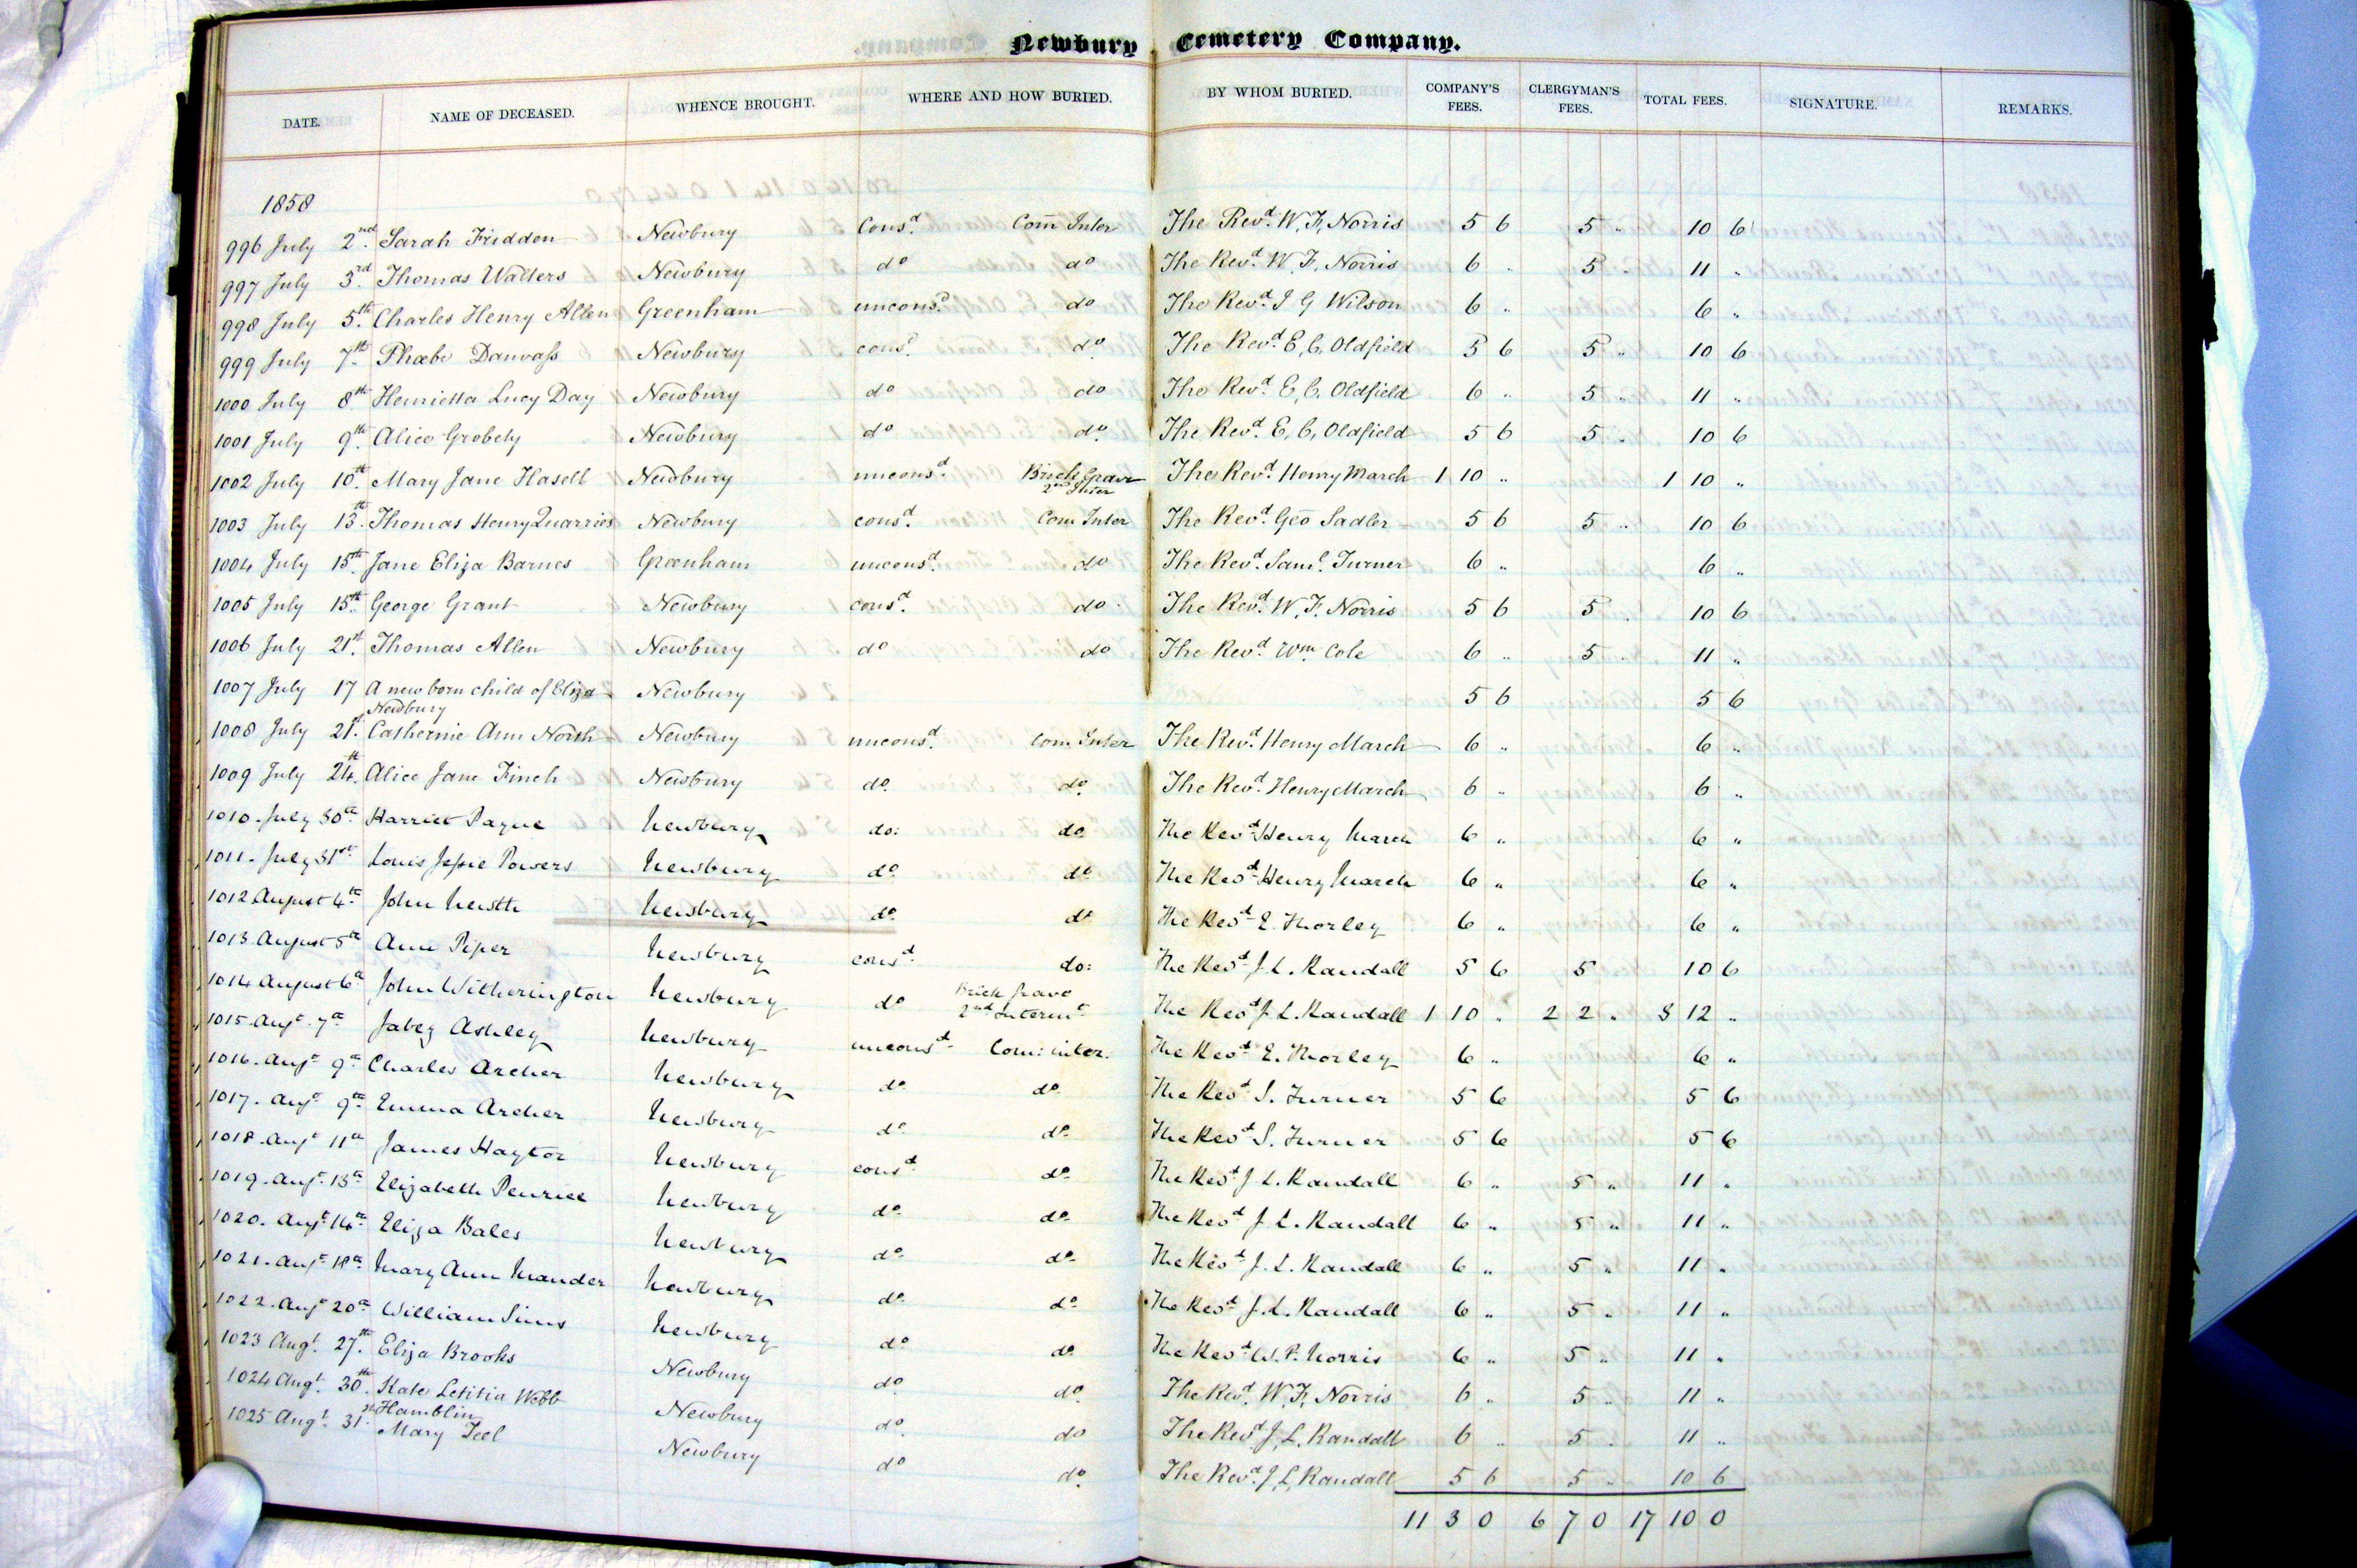 Newbury Cemetery Company.
DATE. NAME OF DECEASED. WHENCE BROUGHT. WHERE AND HOW BURIED. BY WHOM BURIED. COMPANY'S FEES. CLERGYMAN'S FEES. TOTAL FEES. SIGNATURE. REMARKS.
1858
996 July 2nd. Sarah Fridden Newbury Consd. Com Inter The Revd. W. F. Norris 5 6 5 " 10 6
997 July 3rd. Thomas Walters Newbury do do The Revd. W. F. Norris 6 " 5 " 11 "
998 July 5th. Charles Henry Allen Greenham unconsd. do The Revd. J G Wilson 6 " 6 "
999 July 7th Phœbe Danvass Newbury consd. do The Revd. E. C. Oldfield 5 6 5 " 10 6
1000 July 8th Henrietta Lucy Day Newbury do do The Revd. E. C. Oldfield 6 " 5 " 11 "
1001 July 9th. Alice Grobety Newbury do do The Revd. E. C. Oldfield 5 6 5 " 10 6
1002 July 10th. Mary Jane Hasell Newbury unconsd. Brick Grave 2nd Inter The Revd. Henry March 1 10 " 1 10 "
1003 July 13th. Thomas Henry Quarries Newbury consd. Com Inter The Revd. Geo Sadler 5 6 5 " 10 6
1004 July 15th. Jane Eliza Barnes Greenham unconsd. do The Revd. Saml. Turner 6 " 6 "
1005 July 15th. George Grant Newbury consd. do The Revd. W. F. Norris 5 6 5 " 10 6
1006 July 21st. Thomas Allen Newbury do do The Revd. Wm Cole 6 " 5 " 11 "
1007 July 17 A new born child of Eliza Newbury Newbury 5 6 5 6
1008 July 21st. Catherine Ann North Newbury unconsd. Com Inter The Revd. Henry March 6 " 6 "
1009 July 24th. Alice Jane Finch Newbury do do The Revd. Henry March 6 " 6 "
1010. July 30th Harriet Payne Newbury do: do The Revd Henry March 6 " 6 "
1011. July 31st Louis Jessie Powers Newbury do do The Revd Henry March 6 " 6 "
1012 August 4th John Newth Newbury do do The Revd E. Thorley 6 " 6 "
1013. August 5th Ann Piper Newbury consd. do: The Revd J. L. Randall 5 6 5 10 6
1014 August 6th John Witherington Newbury do Brick grave 2nd Intermt The Revd J. L. Randall 1 10 " 2 2 " 3 12 "
1015. Augt. 7th Jabez Ashley Newbury unconsd Com: inter. The Revd E. Thorley 6 " 6 "
1016. Augt 9th Charles Archer Newbury do do The Revd S. Turner 5 6 5 6
1017. Augt 9th Emma Archer Newbury do do The Revd S. Turner 5 6 5 6
1018. Augt 11th James Haytor Newbury consd do The Revd J. L. Randall 6 " 5 " 11 "
1019. Augt. 13th Elizabeth Penrice Newbury do do The Revd J. L. Randall 6 " 5 " 11 "
1020. Augt 14th Eliza Bales Newbury do do The Revd J. L. Randall 6 " 5 " 11 "
1021. Augt 18th Mary Ann Mander Newbury do do The Revd J. L. Randall 6 " 5 " 11 "
1022. Augt 20th William Sims Newbury do do The Revd W. F. Norris 6 " 5 " 11 "
1023 Augt. 27th. Eliza Brooks Newbury do do The Revd. W. F. Norris 6 " 5 " 11 "
1024 Augt. 30th. Kate Letitia Webb Hamblin Newbury do do The Revd J. L. Randall 6 " 5 " 11 "
1025 Augt. 31st. Mary Teel Newbury do do The Revd. J. L. Randall 5 6 5 " 10 6
11 3 0 6 7 0 17 10 0